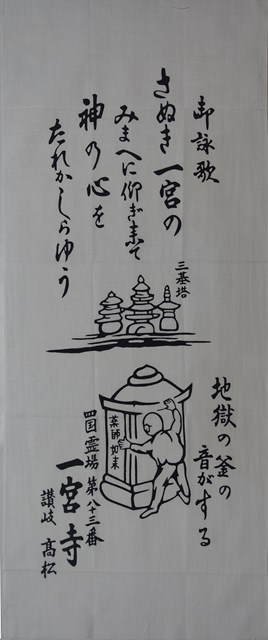 御詠歌
さぬき一宮の
みまへに仰ぎ来て
神の心を
たれかしらゆう
三基塔
地獄の釜の
音がする
薬師如来
四国霊場 第八十三番
一宮寺
讃岐 高松